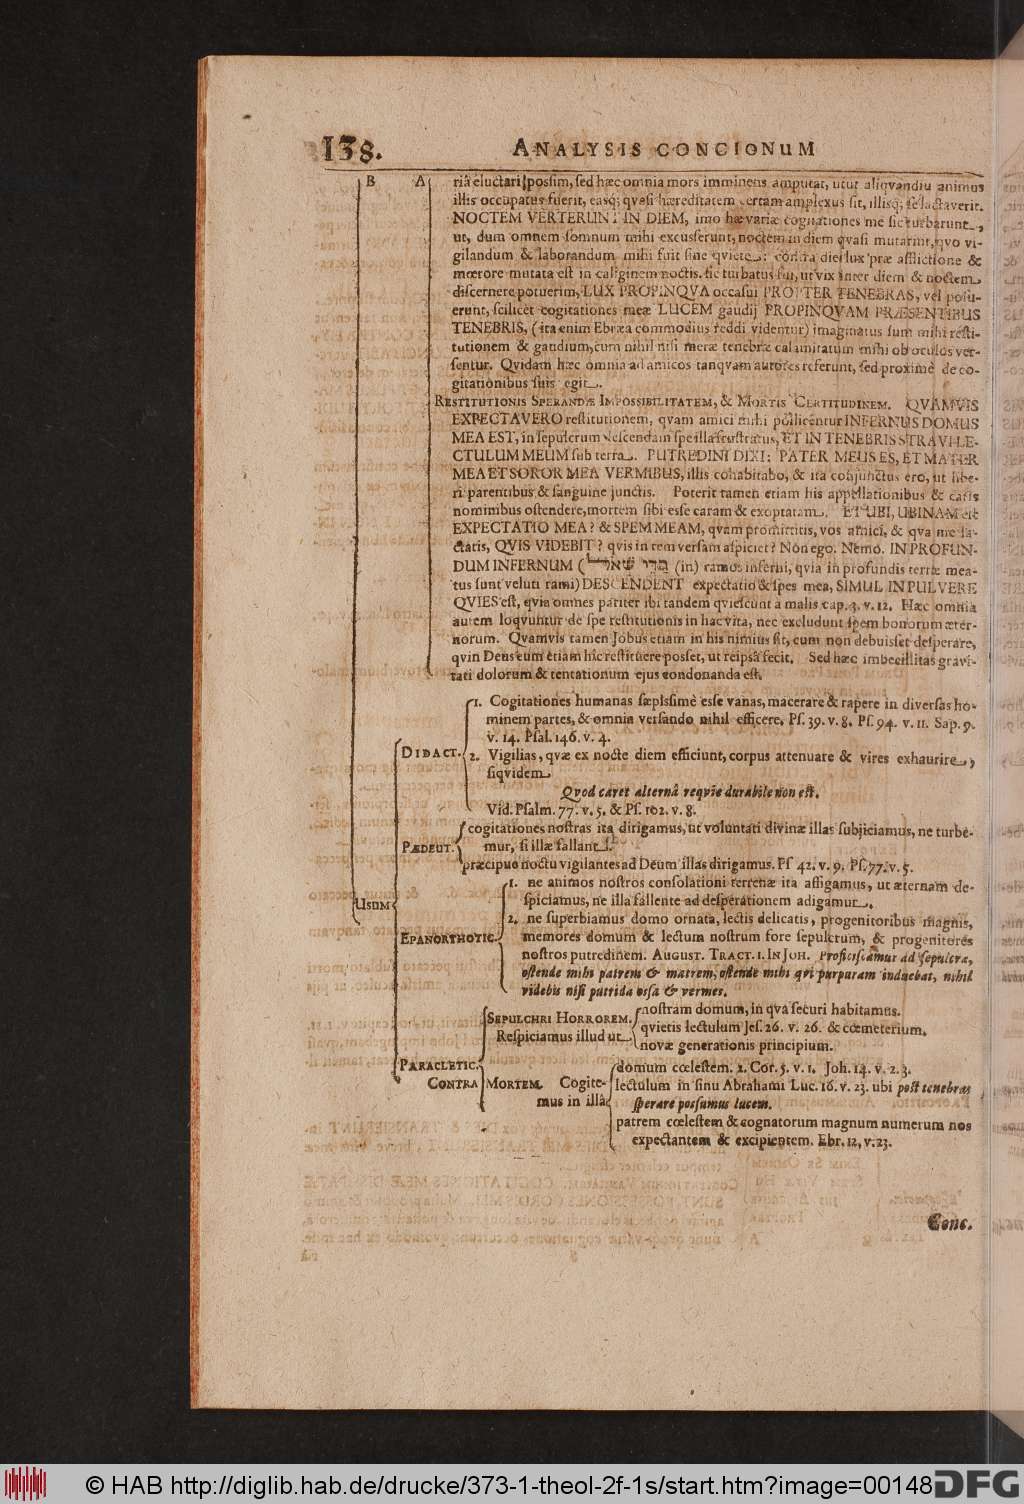 138. ANALYSIS CONCIONUM
B A riâ eluctari possim, sed hæc omnia mors imminens amputat, utut aliqvandiu animus
illis occupatus fuerit, easq; qvasi hæreditatem certam amplexus sit, illisq; se lactaverit.
NOCTEM VERTERUNT IN DIEM, imo hæ variæ cogitationes me sic turbarunt,
ut, dum omnem somnum mihi excusserunt, noctem in diem qvasi mutarint, qvo vi-
gilandum & laborandum mihi fuit sine qviete: contra diei lux præ afflictione &
mœrore mutata est in caliginem noctis. sic turbatus fui, ut vix inter diem & noctem
discernere potuerim, LUX PROPINQVA occasui PROPTER TENEBRAS, vel posu-
erunt, scilicet cogitationes meæ LUCEM gaudij PROPINQVAM PRÆSENTIBUS
TENEBRIS, (ita enim Ebræa commodius reddi videntur) imaginatus sum mihi resti-
tutionem & gaudium, cum nihil nisi meræ tenebræ calamitatum mihi ob oculos ver-
sentur. Qvidam hæc omnia ad amicos tanqvam autores referunt, sed proximè de co-
gitationibus suis egit.
RESTITUTIONIS SPERANDÆ IMPOSSIBILITATEM, & MORTIS CERTITUDINEM. QVAMVIS
EXPECTAVERO restitutionem, qvam amici mihi pollicentur INFERNUS DOMUS
MEA EST, in sepulcrum descendam spe illa frustratus, ET IN TENEBRIS STRAVI LE-
CTULUM MEUM sub terra. PUTREDINI DIXI: PATER MEUS ES, ET MATER
MEA ET SOROR MEA VERMIBUS, illis cohabitabo, & ita conjunctus ero, ut libe-
ri parentibus & sanguine junctis. Poterit tamen etiam his appellationibus & caris
nominibus ostendere, mortem sibi esse caram & exoptatam. ET UBI, UBINAM est
EXPECTATIO MEA? & SPEM MEAM, qvam promittitis, vos amici, & qva me la-
ctatis, QVIS VIDEBIT? qvis in rem versam aspiciet? Non ego. Nemo. IN PROFUN-
DUM INFERNUM (בַּדֵּי שְׁאֹל (in) ramos inferni, qvia in profundis terræ mea-
tus sunt veluti rami) DESCENDENT expectatio & spes mea, SIMUL IN PULVERE
QVIES est, qvia omnes pariter ibi tandem qviescunt a malis cap. 3. v. 12. Hæc omnia
autem loqvuntur de spe restitutionis in hac vita, nec excludunt spem bonorum æter-
norum. Qvamvis tamen Jobus etiam in his nimius sit, cum non debuisset desperare,
qvin Deus eum etiam hîc restituere posset, ut reipsâ fecit. Sed hæc imbecillitas gravi-
tati dolorum & tentationum ejus condonanda est.
USUM
DIDACT.
1. Cogitationes humanas sæpissimè esse vanas, macerare & rapere in diversas ho-
minem partes, & omnia versando nihil efficere, Ps. 39. v. 8. Ps. 94. v. 11. Sap. 9.
v. 14. Psal. 146. v. 4.
2. Vigilias, qvæ ex nocte diem efficiunt, corpus attenuare & vires exhaurire,
siqvidem
Qvod caret alternâ reqvie durabile non est.
Vid. Psalm. 77. v. 5. & Ps. 102. v. 8.
PÆDEUT.
cogitationes nostras ita dirigamus, ut voluntati divinæ illas subjiciamus, ne turbe-
mur, si illæ fallant.
præcipuo noctu vigilantes ad Deum illas dirigamus. Ps 42. v. 9. Ps. 77. v. 5.
EPANORTHOTIC.
1. ne animos nostros consolationi terrenæ ita affigamus, ut æternam de-
spiciamus, ne illa fallente ad desperationem adigamur.
2. ne superbiamus domo ornata, lectis delicatis, progenitoribus magnis,
memores domum & lectum nostrum fore sepulcrum, & progenitores
nostros putredinem. AUGUST. TRACT. 1. IN JOH. Proficiscamur ad sepulcra,
ostende mihi patrem & matrem, ostende mihi qvi purpuram induebat, nihil
videbis nisi putrida ossa & vermes.
PARACLETIC. CONTRA
SEPULCHRI HORROREM.
Respiciamus illud ut
nostram domum, in qvâ securi habitamus.
qvietis lectulum Jes. 26. v. 26. & cœmeterium.
novæ generationis principium.
MORTEM. Cogite-
mus in illâ
domum cœlestem. 2. Cor. 5. v. 1. Joh. 14. v. 2. 3.
lectulum in sinu Abrahami Luc. 16. v. 23. ubi post tenebras
sperare possumus lucem.
patrem cœlestem & cognatorum magnum numerum nos
expectantem & excipientem. Ebr. 12. v. 23.
Conc.
© HAB http://diglib.hab.de/drucke/373-1-theol-2f-1s/start.htm?image=00148 DFG